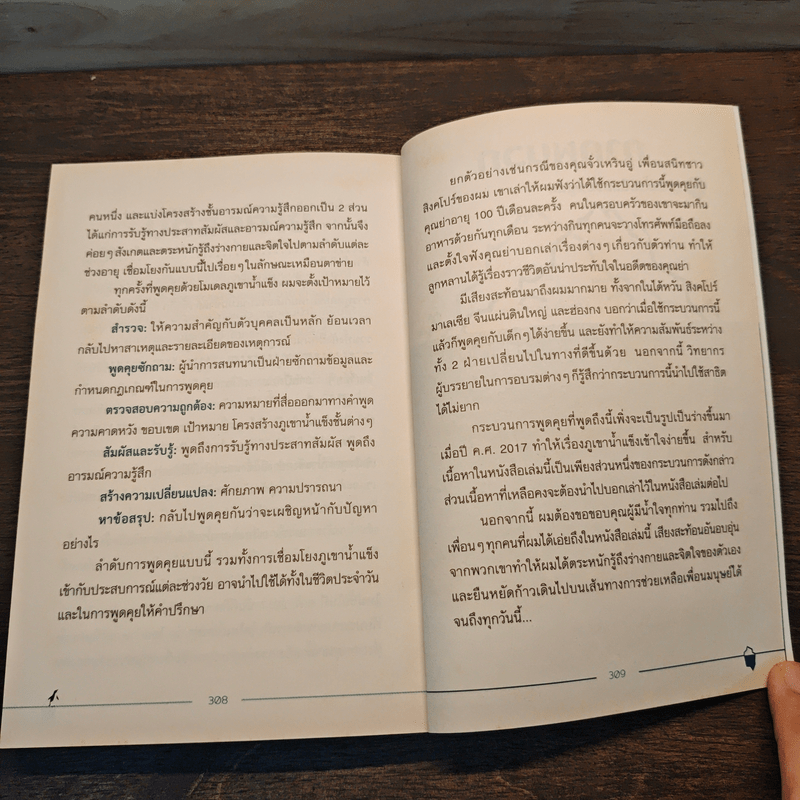 คนหนึ่ง และแบ่งโครงสร้างชั้นอารมณ์ความรู้สึกออกเป็น 2 ส่วน
ได้แก่การรับรู้ทางประสาทสัมผัสและอารมณ์ความรู้สึก จากนั้นจึง
ค่อยๆ สังเกตและตระหนักรู้ถึงร่างกายและจิตใจไปตามลำดับแต่ละ
ช่วงอายุ เชื่อมโยงกันแบบนี้ไปเรื่อยๆ ในลักษณะเหมือนตาข่าย
ทุกครั้งที่พูดคุยด้วยโมเดลภูเขาน้ำแข็ง ผมจะตั้งเป้าหมายไว้
ตามลำดับดังนี้
สำรวจ: ให้ความสำคัญกับตัวบุคคลเป็นหลัก ย้อนเวลา
กลับไปหาสาเหตุและรายละเอียดของเหตุการณ์
พูดคุยซักถาม: ผู้นำการสนทนาเป็นฝ่ายซักถามข้อมูลและ
กำหนดกฎเกณฑ์ในการพูดคุย
ตรวจสอบความถูกต้อง: ความหมายที่สื่อออกมาทางคำพูด
ความคาดหวัง ขอบเขต เป้าหมาย โครงสร้างภูเขาน้ำแข็งชั้นต่างๆ
สัมผัสและรับรู้: พูดถึงการรับรู้ทางประสาทสัมผัส พูดถึง
อารมณ์ความรู้สึก
สร้างความเปลี่ยนแปลง: ศักยภาพ ความปรารถนา
หาข้อสรุป: กลับไปพูดคุยกันว่าจะเผชิญหน้ากับปัญหา
อย่างไร
ลำดับการพูดคุยแบบนี้ รวมทั้งการเชื่อมโยงภูเขาน้ำแข็ง
เข้ากับประสบการณ์แต่ละช่วงวัย อาจนำไปใช้ได้ทั้งในชีวิตประจำวัน
และในการพูดคุยให้คำปรึกษา
308
ยกตัวอย่างเช่นกรณีของคุณจั๋วเหวินอู่ เพื่อนสนิทชาว
สิงคโปร์ของผม เขาเล่าให้ผมฟังว่าได้ใช้กระบวนการนี้พูดคุยกับ
คุณย่าอายุ 100 ปีเดือนละครั้ง คนในครอบครัวของเขาจะมากิน
อาหารด้วยกันทุกเดือน ระหว่างกินทุกคนจะวางโทรศัพท์มือถือลง
และตั้งใจฟังคุณย่าบอกเล่าเรื่องต่างๆ เกี่ยวกับตัวท่าน ทำให้
ลูกหลานได้รู้เรื่องราวชีวิตอันน่าประทับใจในอดีตของคุณย่า
มีเสียงสะท้อนมาถึงผมมากมาย ทั้งจากไต้หวัน สิงคโปร์
มาเลเซีย จีนแผ่นดินใหญ่ และฮ่องกง บอกว่าเมื่อใช้กระบวนการนี้
แล้วก็พูดคุยกับเด็กๆ ได้ง่ายขึ้น และยังทำให้ความสัมพันธ์ระหว่าง
ทั้ง 2 ฝ่ายเปลี่ยนไปในทางที่ดีขึ้นด้วย นอกจากนี้ วิทยากร
ผู้บรรยายในการอบรมต่างๆ ก็รู้สึกว่ากระบวนการนี้นำไปใช้สาธิต
ได้ไม่ยาก
กระบวนการพูดคุยที่พูดถึงนี้เพิ่งจะเป็นรูปเป็นร่างขึ้นมา
เมื่อปี ค.ศ. 2017 ทำให้เรื่องภูเขาน้ำแข็งเข้าใจง่ายขึ้น สำหรับ
เนื้อหาในหนังสือเล่มนี้เป็นเพียงส่วนหนึ่งของกระบวนการดังกล่าว
ส่วนเนื้อหาที่เหลือคงจะต้องนำไปบอกเล่าไว้ในหนังสือเล่มต่อไป
นอกจากนี้ ผมต้องขอขอบคุณผู้มีน้ำใจทุกท่าน รวมไปถึง
เพื่อนๆ ทุกคนที่ผมได้เอ่ยถึงในหนังสือเล่มนี้ เสียงสะท้อนอันอบอุ่น
จากพวกเขาทำให้ผมได้ตระหนักรู้ถึงร่างกายและจิตใจของตัวเอง
และยืนหยัดก้าวเดินไปบนเส้นทางการช่วยเหลือเพื่อนมนุษย์ได้
จนถึงทุกวันนี้...
309